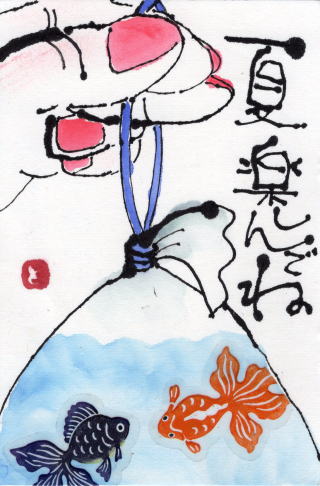 夏
楽んでね
と